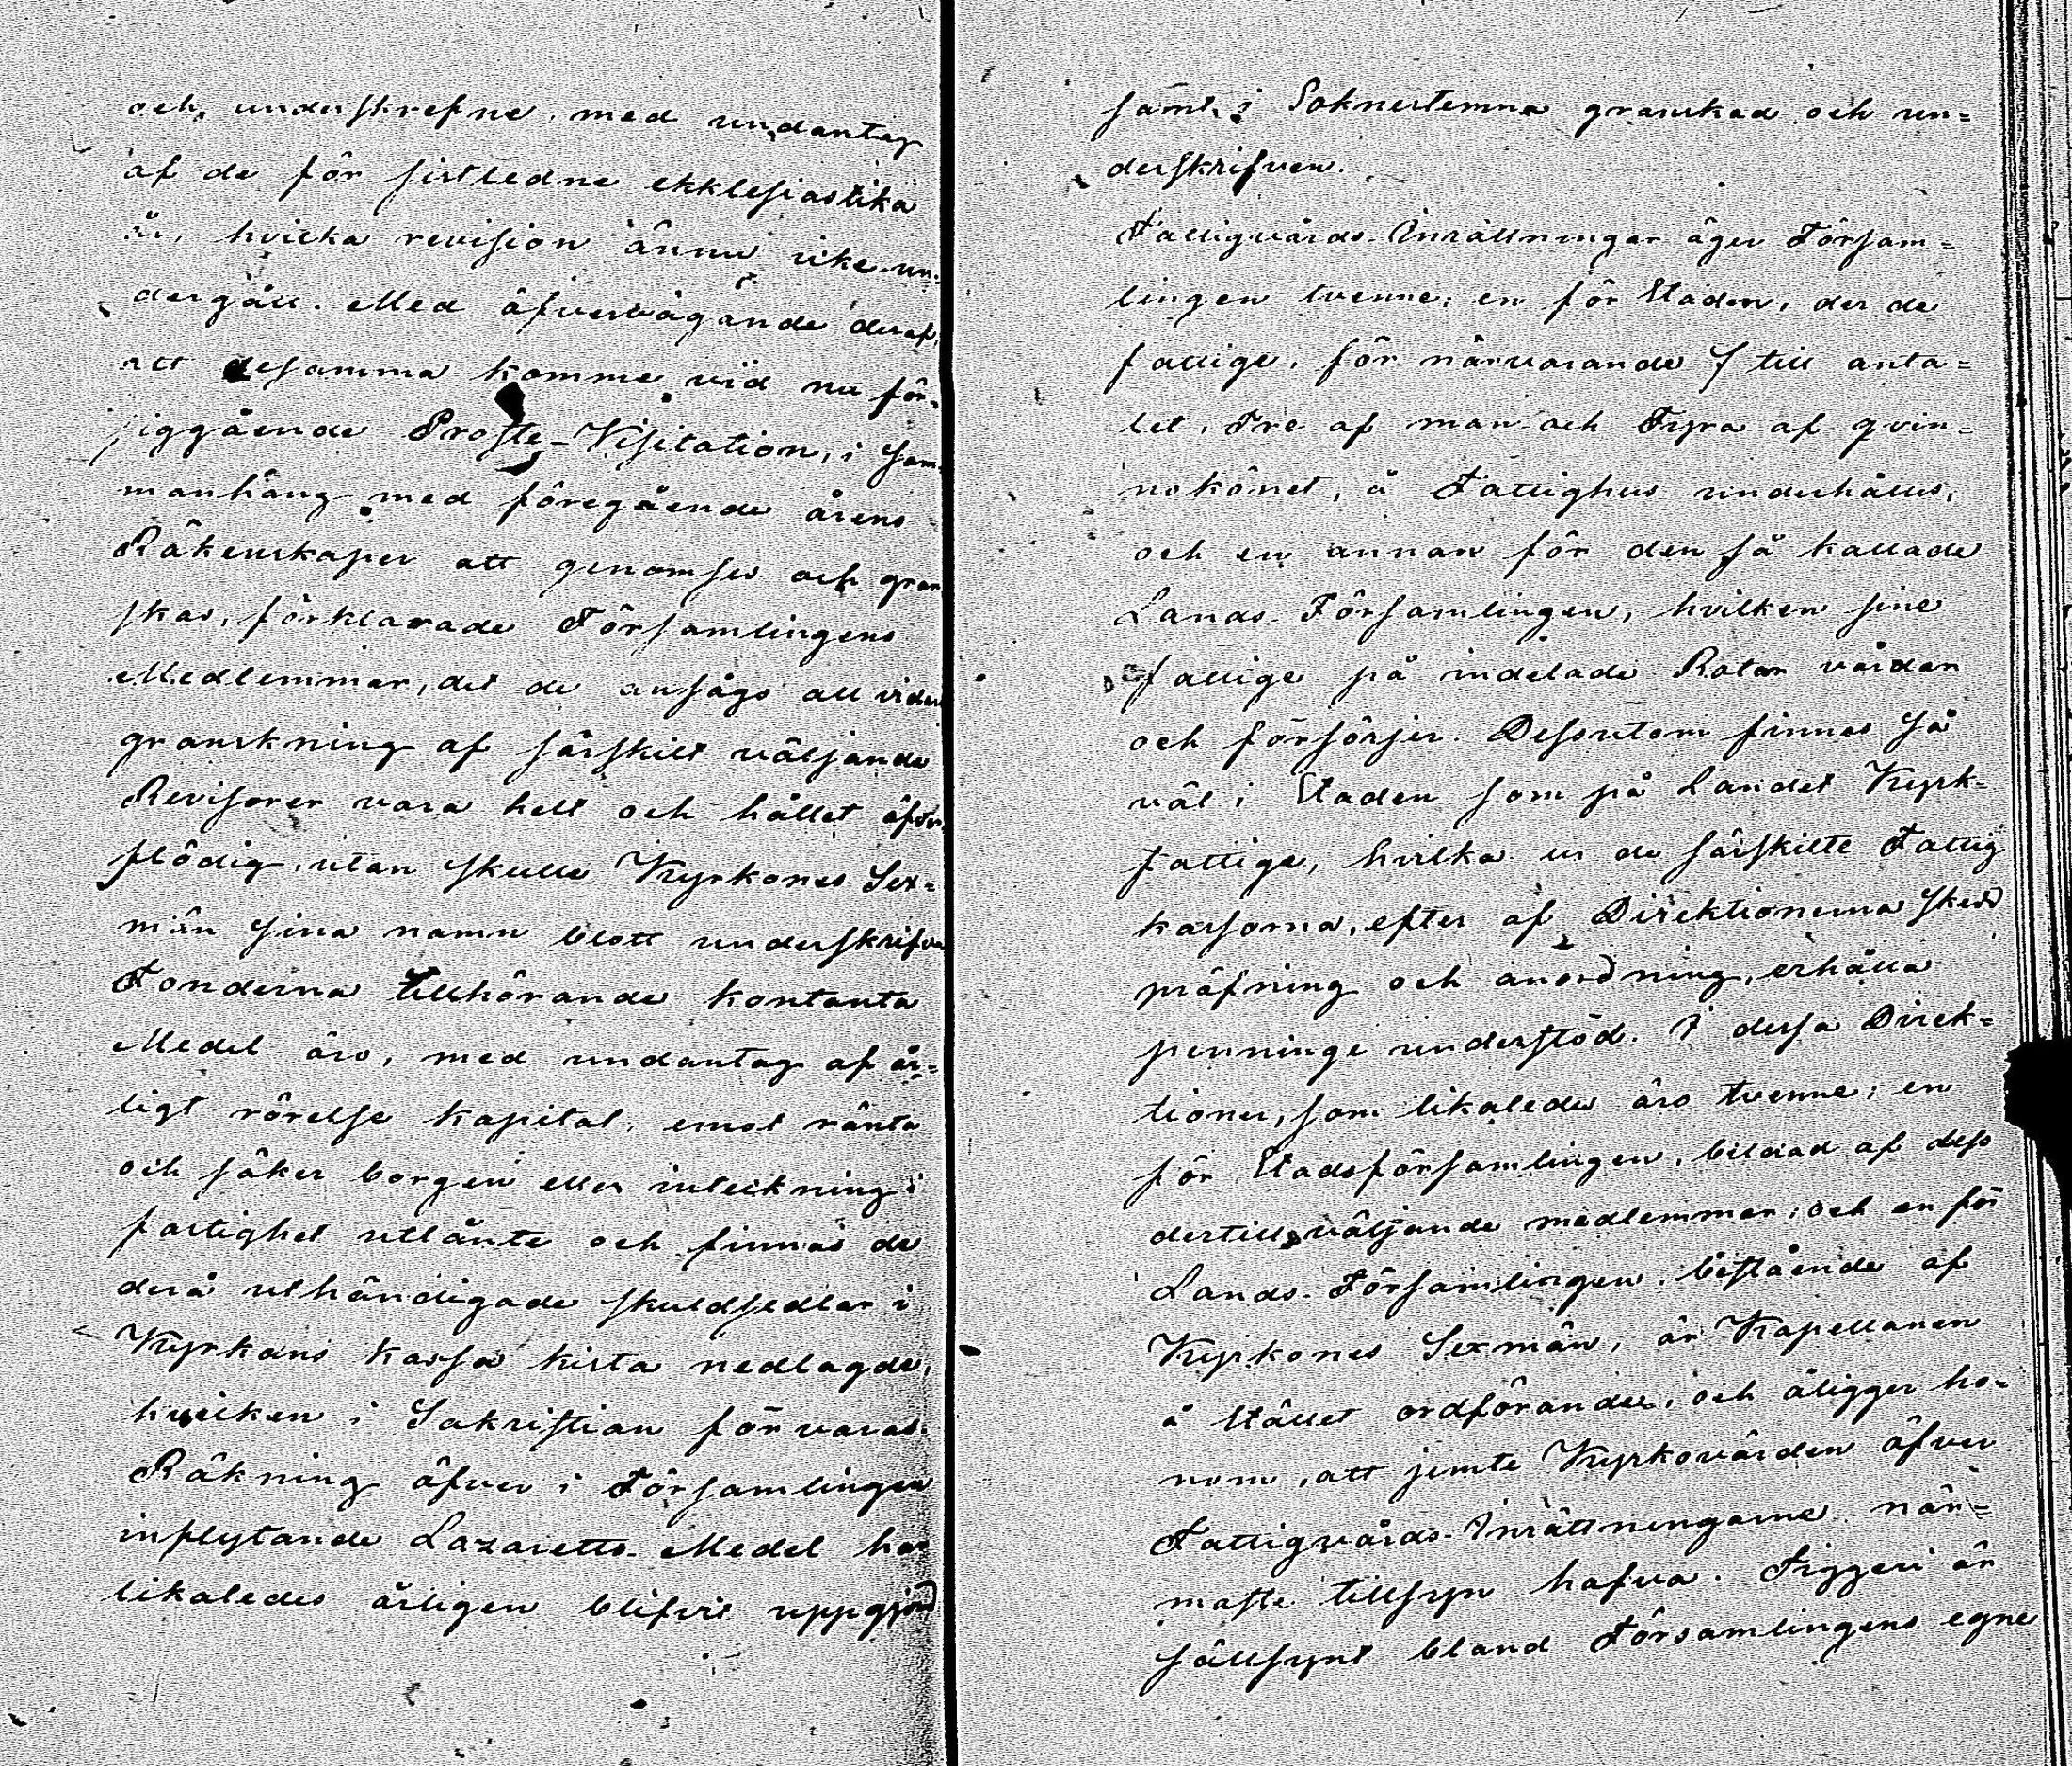 och underskrefne, med undantag
af de för sistledne ekklesiastika
år, hvilka revision ännu icke un-
dergått. Med öfvervägande deraf,
att desamma komme vid nu för-
siggående Proste-Visitation, i sam-
manhang med föregående årens
Räkenskaper att genomses och gran
skas, förklarade Församlingens
Medlemmar, det de ansågo all vidare
granskning af särskilt väljande
Revisorer vara helt och hållet öfver
flödig, utan skulle Kyrkones Sex-
män sina namn blott underskrifva
Fonderna tillhörande kontanta
Medel äro, med undantag af år-
ligt rörelse kapital, emot ränta
och säker borgen eller inteckning i
fastighet utlånte och finnas de
derå uthändigade skuldsedlar i
Kyrkans kassa kista nedlagde,
hvilken i Sakristian förvaras.
Räkning öfver i Församlingen
inflytande Lazaretts-Medel har
likaledes årligen blifvit uppgjord
samt i Soknestemma granskad och un-
derskrifven.
Fattigvårds-Inrättningar äger Försam-
lingen tvenne; en för Staden, der de
fattige, för närvarande 7 till anta-
let, Tre af man och Fyra af qvin-
nokönet, å Fattighus underhålles,
och en annan för den så kallade
Lands-Församlingen, hvilken sine
fattige på indelade Rotar vårdar
och försörjer. Dessutom finnas så
väl i Staden som på Landet Kyrk-
fattige, hvilka ur de särskilte Fattig
kassorna, efter af Direktionerna skedd
pröfning och anordning, erhålla
penninge understöd. I dessa Direk-
tioner, som likaledes äro tvenne; en
för Stadsförsamlingen, bildad af dess
dertill väljande medlemmar; och en för
Lands-Församlingen, bestående af
Kyrkones Sexmän, är Kapellanen
å Stället ordförande, och åligger ho-
nom, att jemte Kyrkovärden öfver
Fattigvårds-Inrättningarne när-
maste tillsyn hafva. Tiggeri är
sällsynt bland Församlingens egne